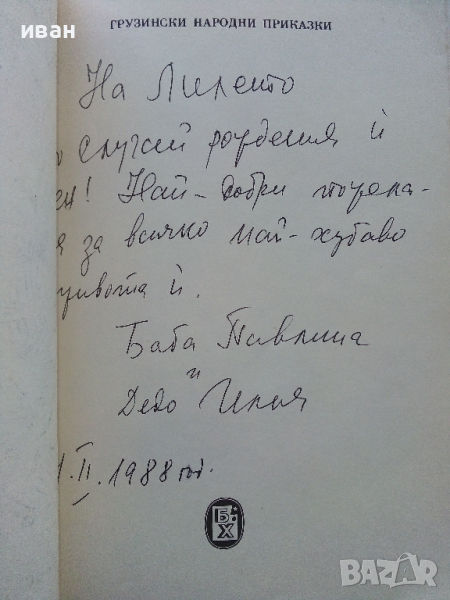 иван
ГРУЗИНСКИ НАРОДНИ ПРИКАЗКИ
На Лилето
случай рождения й
Най-добри пожела-
я за всичко най-хубаво
живота й.
Баба Павлина
и
Дедо Илия
1.II.1988 год.
Б:
Х
BAZAR